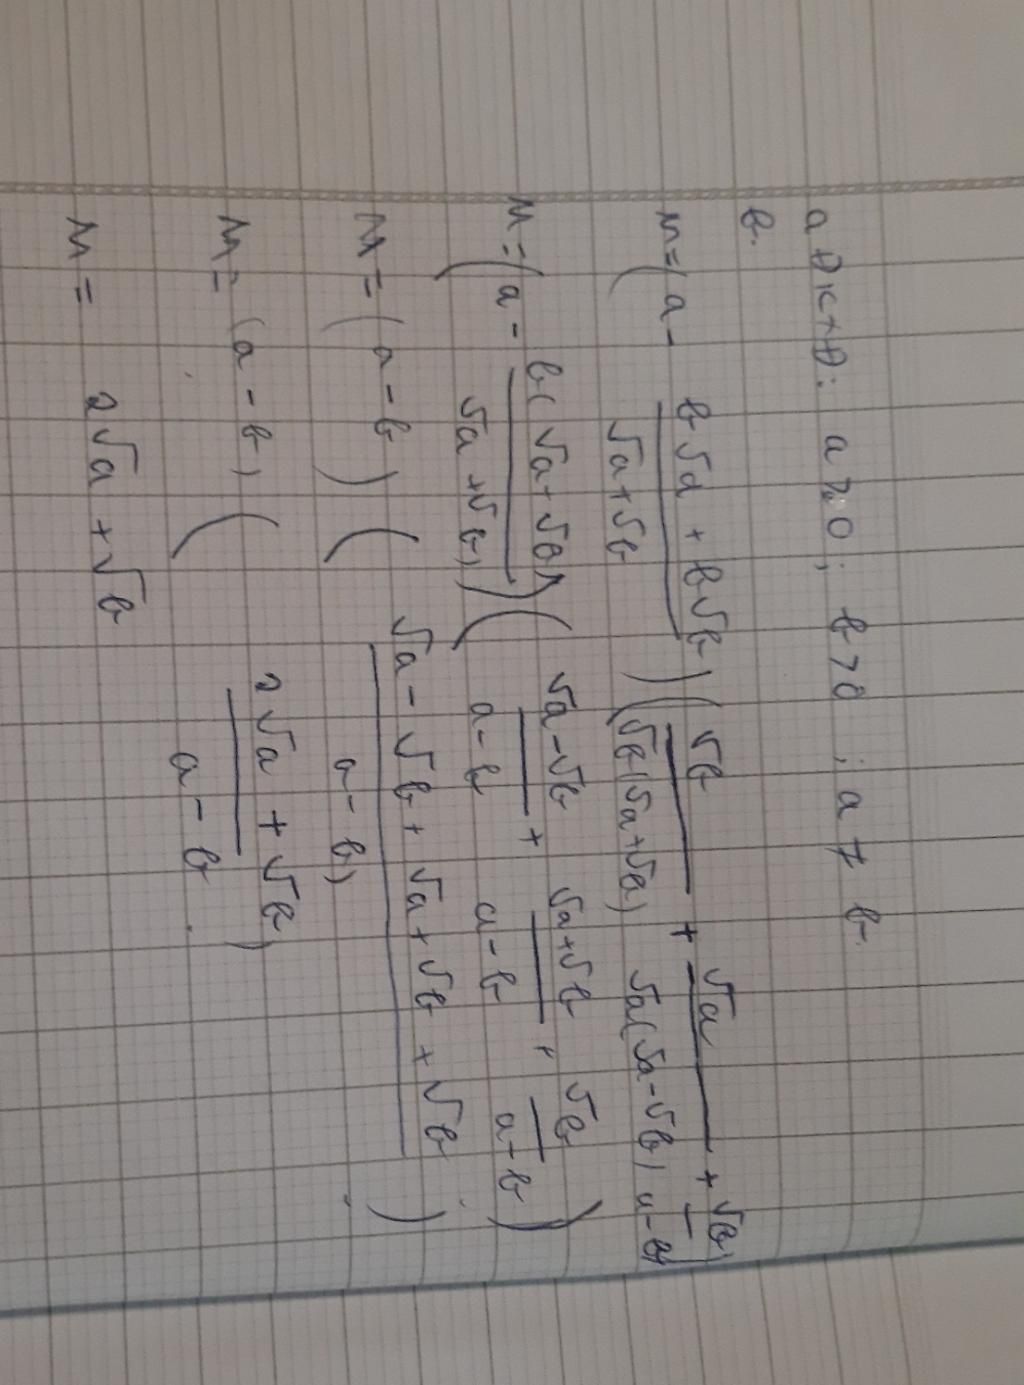 a) ĐKXĐ: a ≥ 0; b > 0; a ≠ b.
b.
M = (a - (b√a + b√b)/(√a + √b)) (√b/(√b(√a + √b)) + √a/(√a(√a - √b)) + √b/(a - b))
M = (a - b(√a + √b)/(√a + √b)) ((√a - √b)/(a - b) + (√a + √b)/(a - b) + √b/(a - b))
M = (a - b) ((√a - √b + √a + √b + √b)/(a - b))
M = (a - b) ((2√a + √b)/(a - b))
M = 2√a + √b